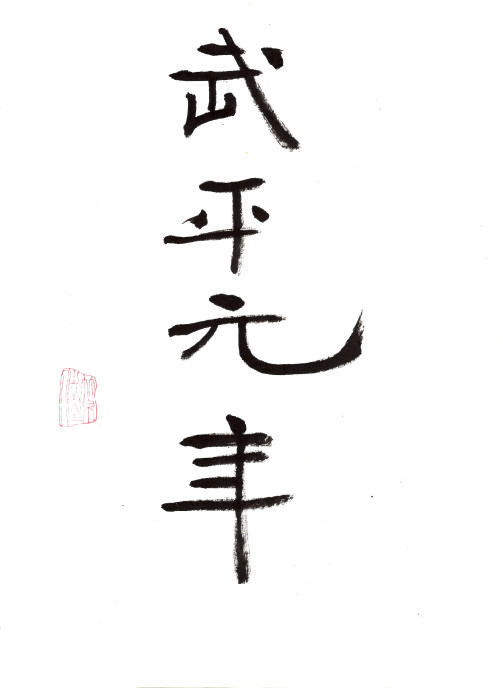 武平元年